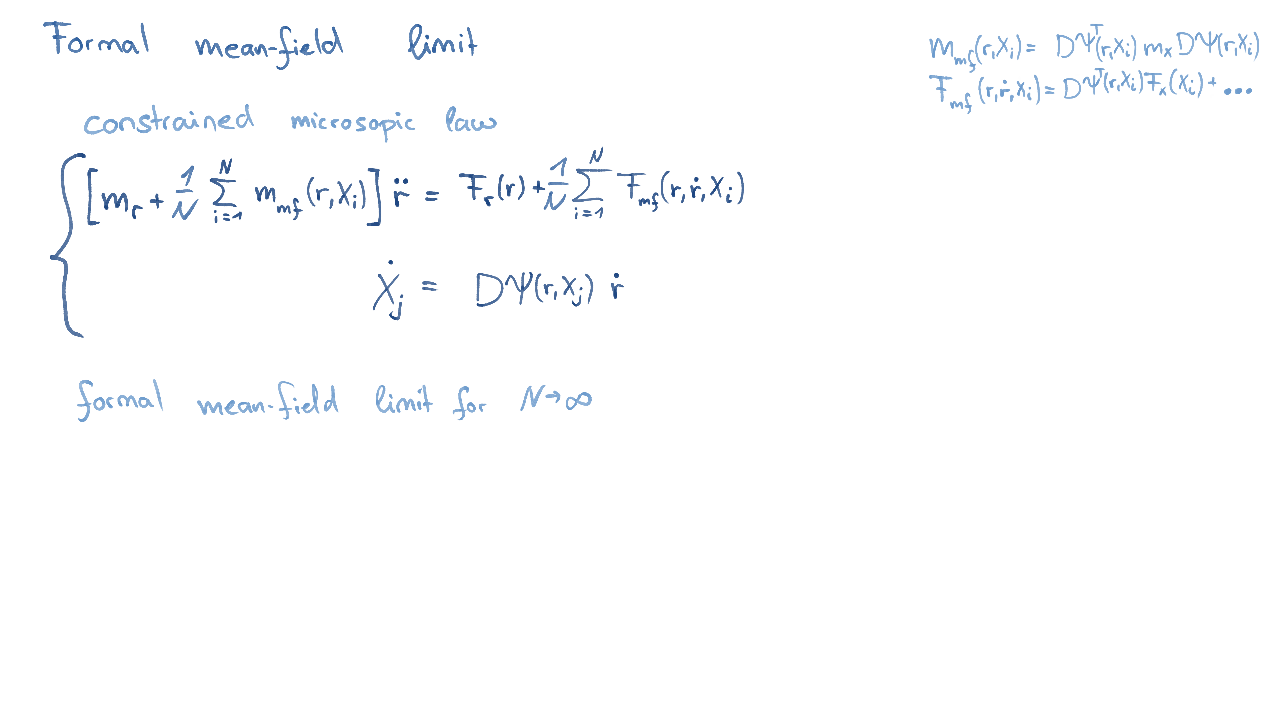 Formal mean-field limit
m_mf(r,X_i) = DΨ^T(r,X_i) m_x DΨ(r,X_i)
F_mf(r,ṙ,X_i) = DΨ^T(r,X_i) F_x(X_i) + ...
constrained microsopic law
[m_r + 1/N ∑_{i=1}^N m_mf(r,X_i)] r̈ = F_r(r) + 1/N ∑_{i=1}^N F_mf(r,ṙ,X_i)
Ẋ_j = DΨ(r,X_j) ṙ
formal mean-field limit for N→∞